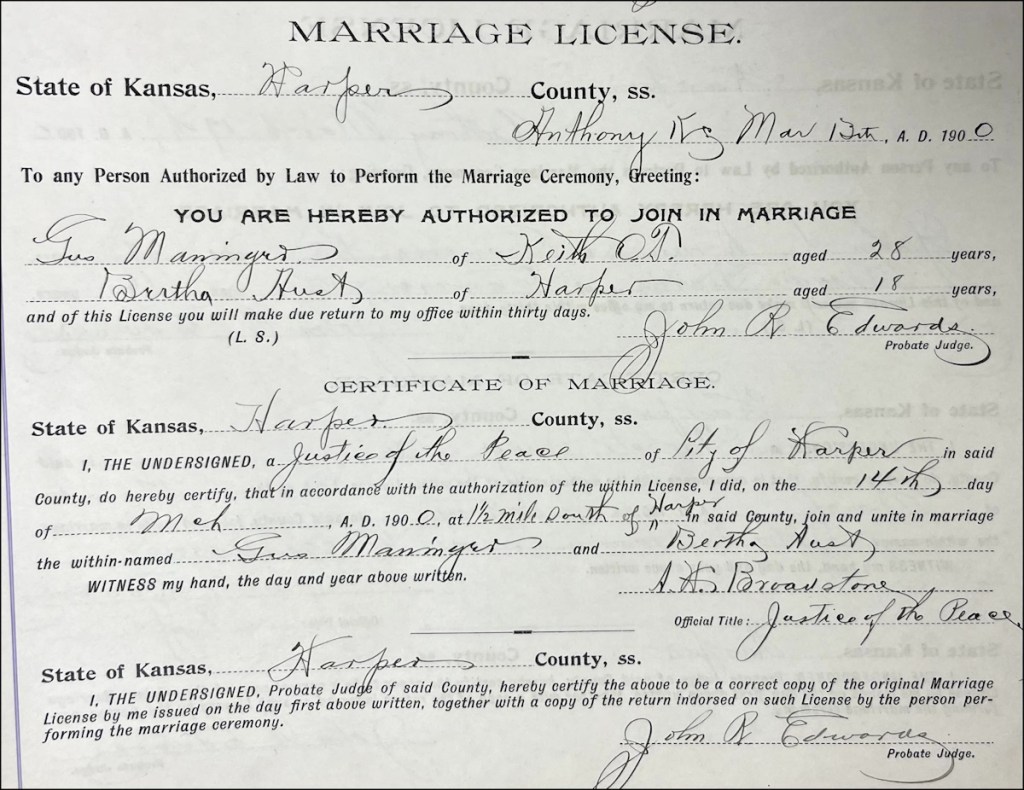 MARRIAGE LICENSE.
State of Kansas, Harper County, ss.
Anthony Ks Mar 13th, A. D. 1900
To any Person Authorized by Law to Perform the Marriage Ceremony, Greeting:
YOU ARE HEREBY AUTHORIZED TO JOIN IN MARRIAGE
Gus Maninger of Keith O.T. aged 28 years,
Bertha Aust of Harper aged 18 years,
and of this License you will make due return to my office within thirty days.
(L. S.) John R Edwards.
Probate Judge.
CERTIFICATE OF MARRIAGE.
State of Kansas, Harper County, ss.
I, THE UNDERSIGNED, a Justice of the Peace of City of Harper in said
County, do hereby certify, that in accordance with the authorization of the within License, I did, on the 14th day
of Mch, A. D. 1900, at 1½ mile south of Harper in said County, join and unite in marriage
the within-named Gus Maninger and Bertha Aust
WITNESS my hand, the day and year above written. A. H. Broadstone
Official Title: Justice of the Peace
State of Kansas, Harper County, ss.
I, THE UNDERSIGNED, Probate Judge of said County, hereby certify the above to be a correct copy of the original Marriage
License by me issued on the day first above written, together with a copy of the return indorsed on such License by the person per-
forming the marriage ceremony.
John R Edwards
Probate Judge.